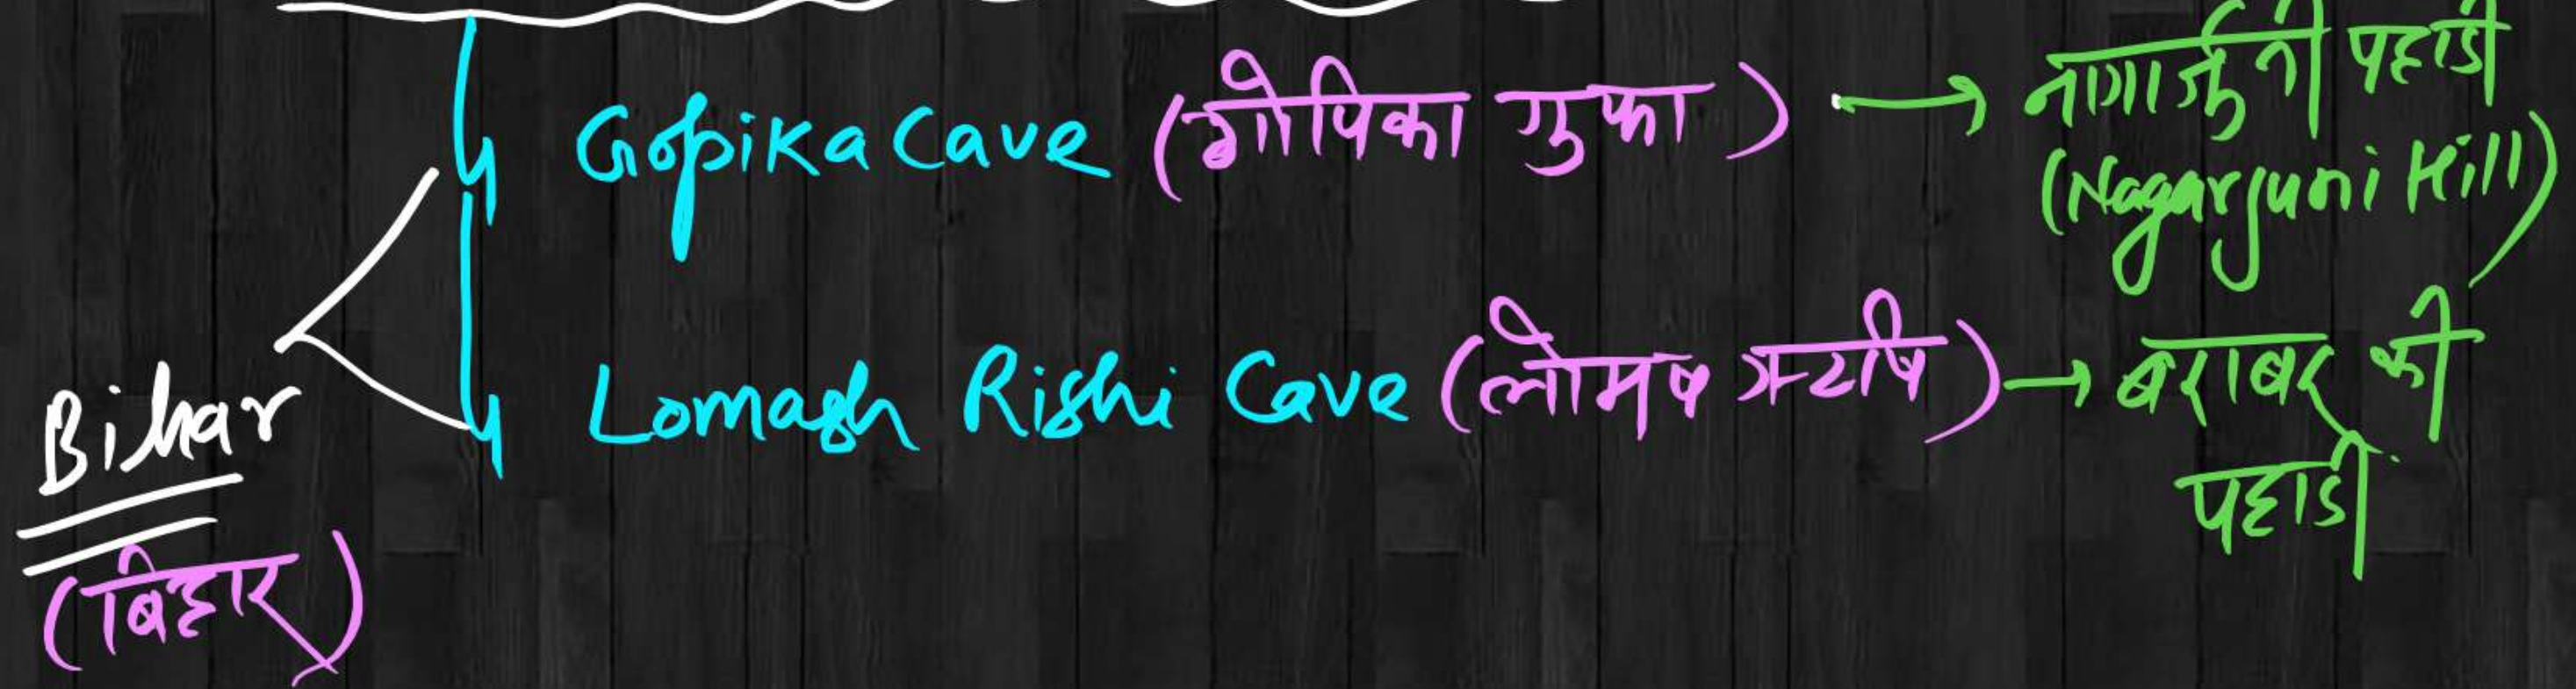 Gopika Cave (गोपिका गुफा) → नागार्जुनी पहाडी
(Nagarjuni Hill)
Lomash Rishi Cave (लोमष ऋषि) → बराबर की
पहाडी
Bihar
(बिहार)